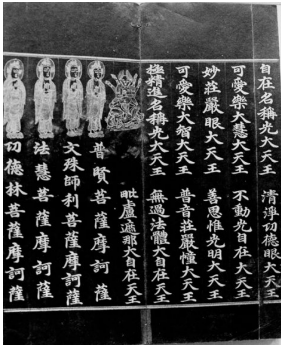 自在名稱光大天王 清淨功德眼大天王
可愛樂大慧大天王 不動光自在大天王
妙莊嚴眼大天王 善思惟光明大天王
可愛樂大智大天王 普音莊嚴幢大天王
極精進名稱光大天王 無過法體大自在天王
毗盧遮那大自在天王
普賢菩薩摩訶薩
文殊師利菩薩摩訶薩
法慧菩薩摩訶薩
功德林菩薩摩訶薩